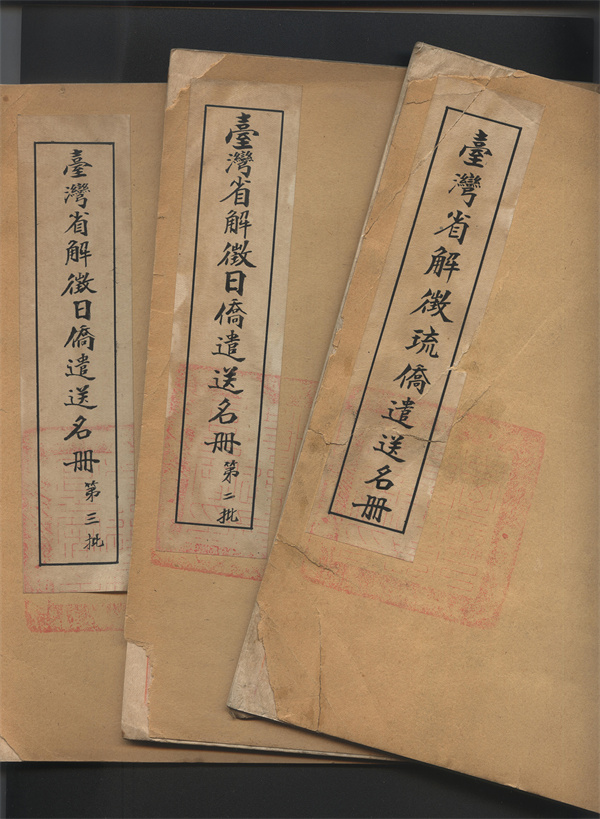 臺灣省解徵琉僑遣送名册
臺灣省解徵日僑遣送名册 第二批
臺灣省解徵日僑遣送名册 第三批